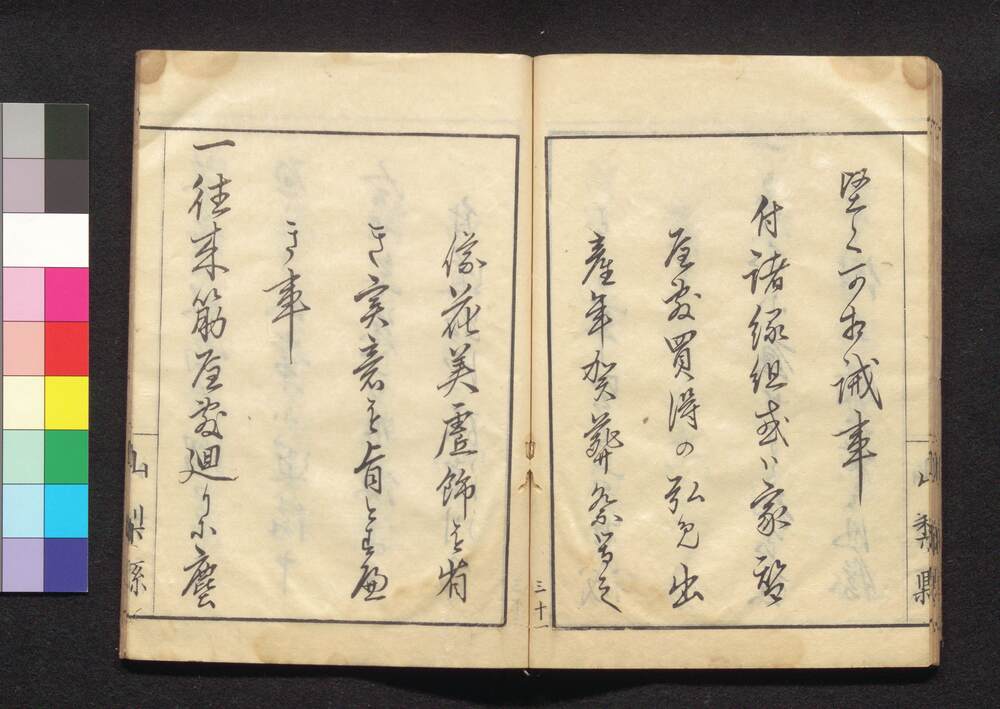 堅く可相誡事
付諸縁組或ハ家督
屋敷買得の弘見出
産年賀葬祭等之
儀花美虚飾を省
き実意を旨とすへ
き事
一往来筋屋敷廻りニ塵
三十一
山梨縣
山梨縣